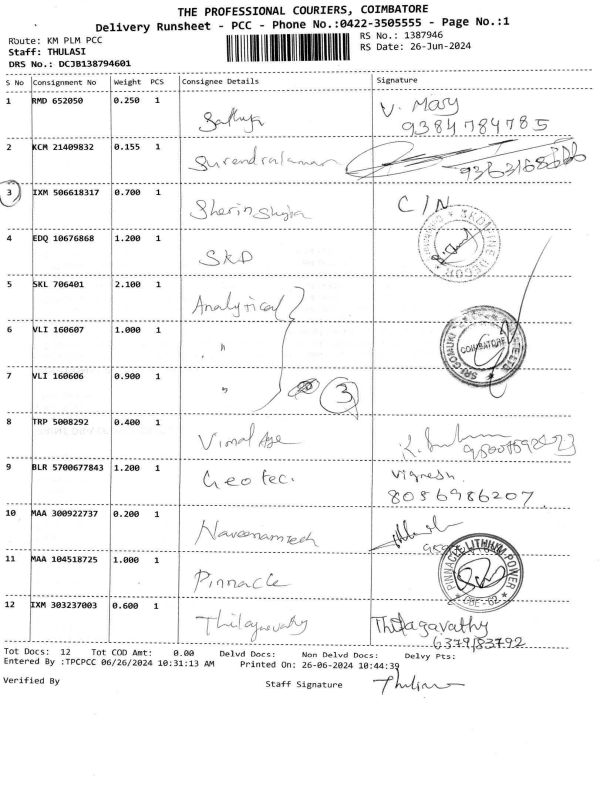 THE PROFESSIONAL COURIERS, COIMBATORE
Delivery Runsheet - PCC - Phone No.:0422-3505555 - Page No.:1
Route: KM PLM PCC
RS No.: 1387946
Staff: THULASI
RS Date: 26-Jun-2024
DRS No.: DCJB138794601
S No Consignment No Weight PCS Consignee Details Signature
1 RMD 652050 0.250 1 Sathya V. Mary
9384784785
2 KCM 21409832 0.155 1 Surendrakumar
3 IXM 506618317 0.700 1 Sherin Shyja C/N
4 EDQ 10676868 1.200 1 SKD
5 SKL 706401 2.100 1 Analytical
6 VLI 160607 1.000 1 "
COIMBATORE
7 VLI 160606 0.900 1 " 3
8 TRP 5008292 0.400 1 Vimal Age
9 BLR 5700677843 1.200 1 Geo tec. Vignesh
8056986207
10 MAA 300922737 0.200 1 Naveenamtech
11 MAA 104518725 1.000 1 Pinnacle
PINNACLE LITHIUM POWER
CBE-62
12 IXM 303237003 0.600 1 Thilagavathy Thilagavathy
Tot Docs: 12 Tot COD Amt: 0.00 Delvd Docs: Non Delvd Docs: Delvy Pts:
Entered By :TPCPCC 06/26/2024 10:31:13 AM Printed On: 26-06-2024 10:44:39
Verified By Staff Signature